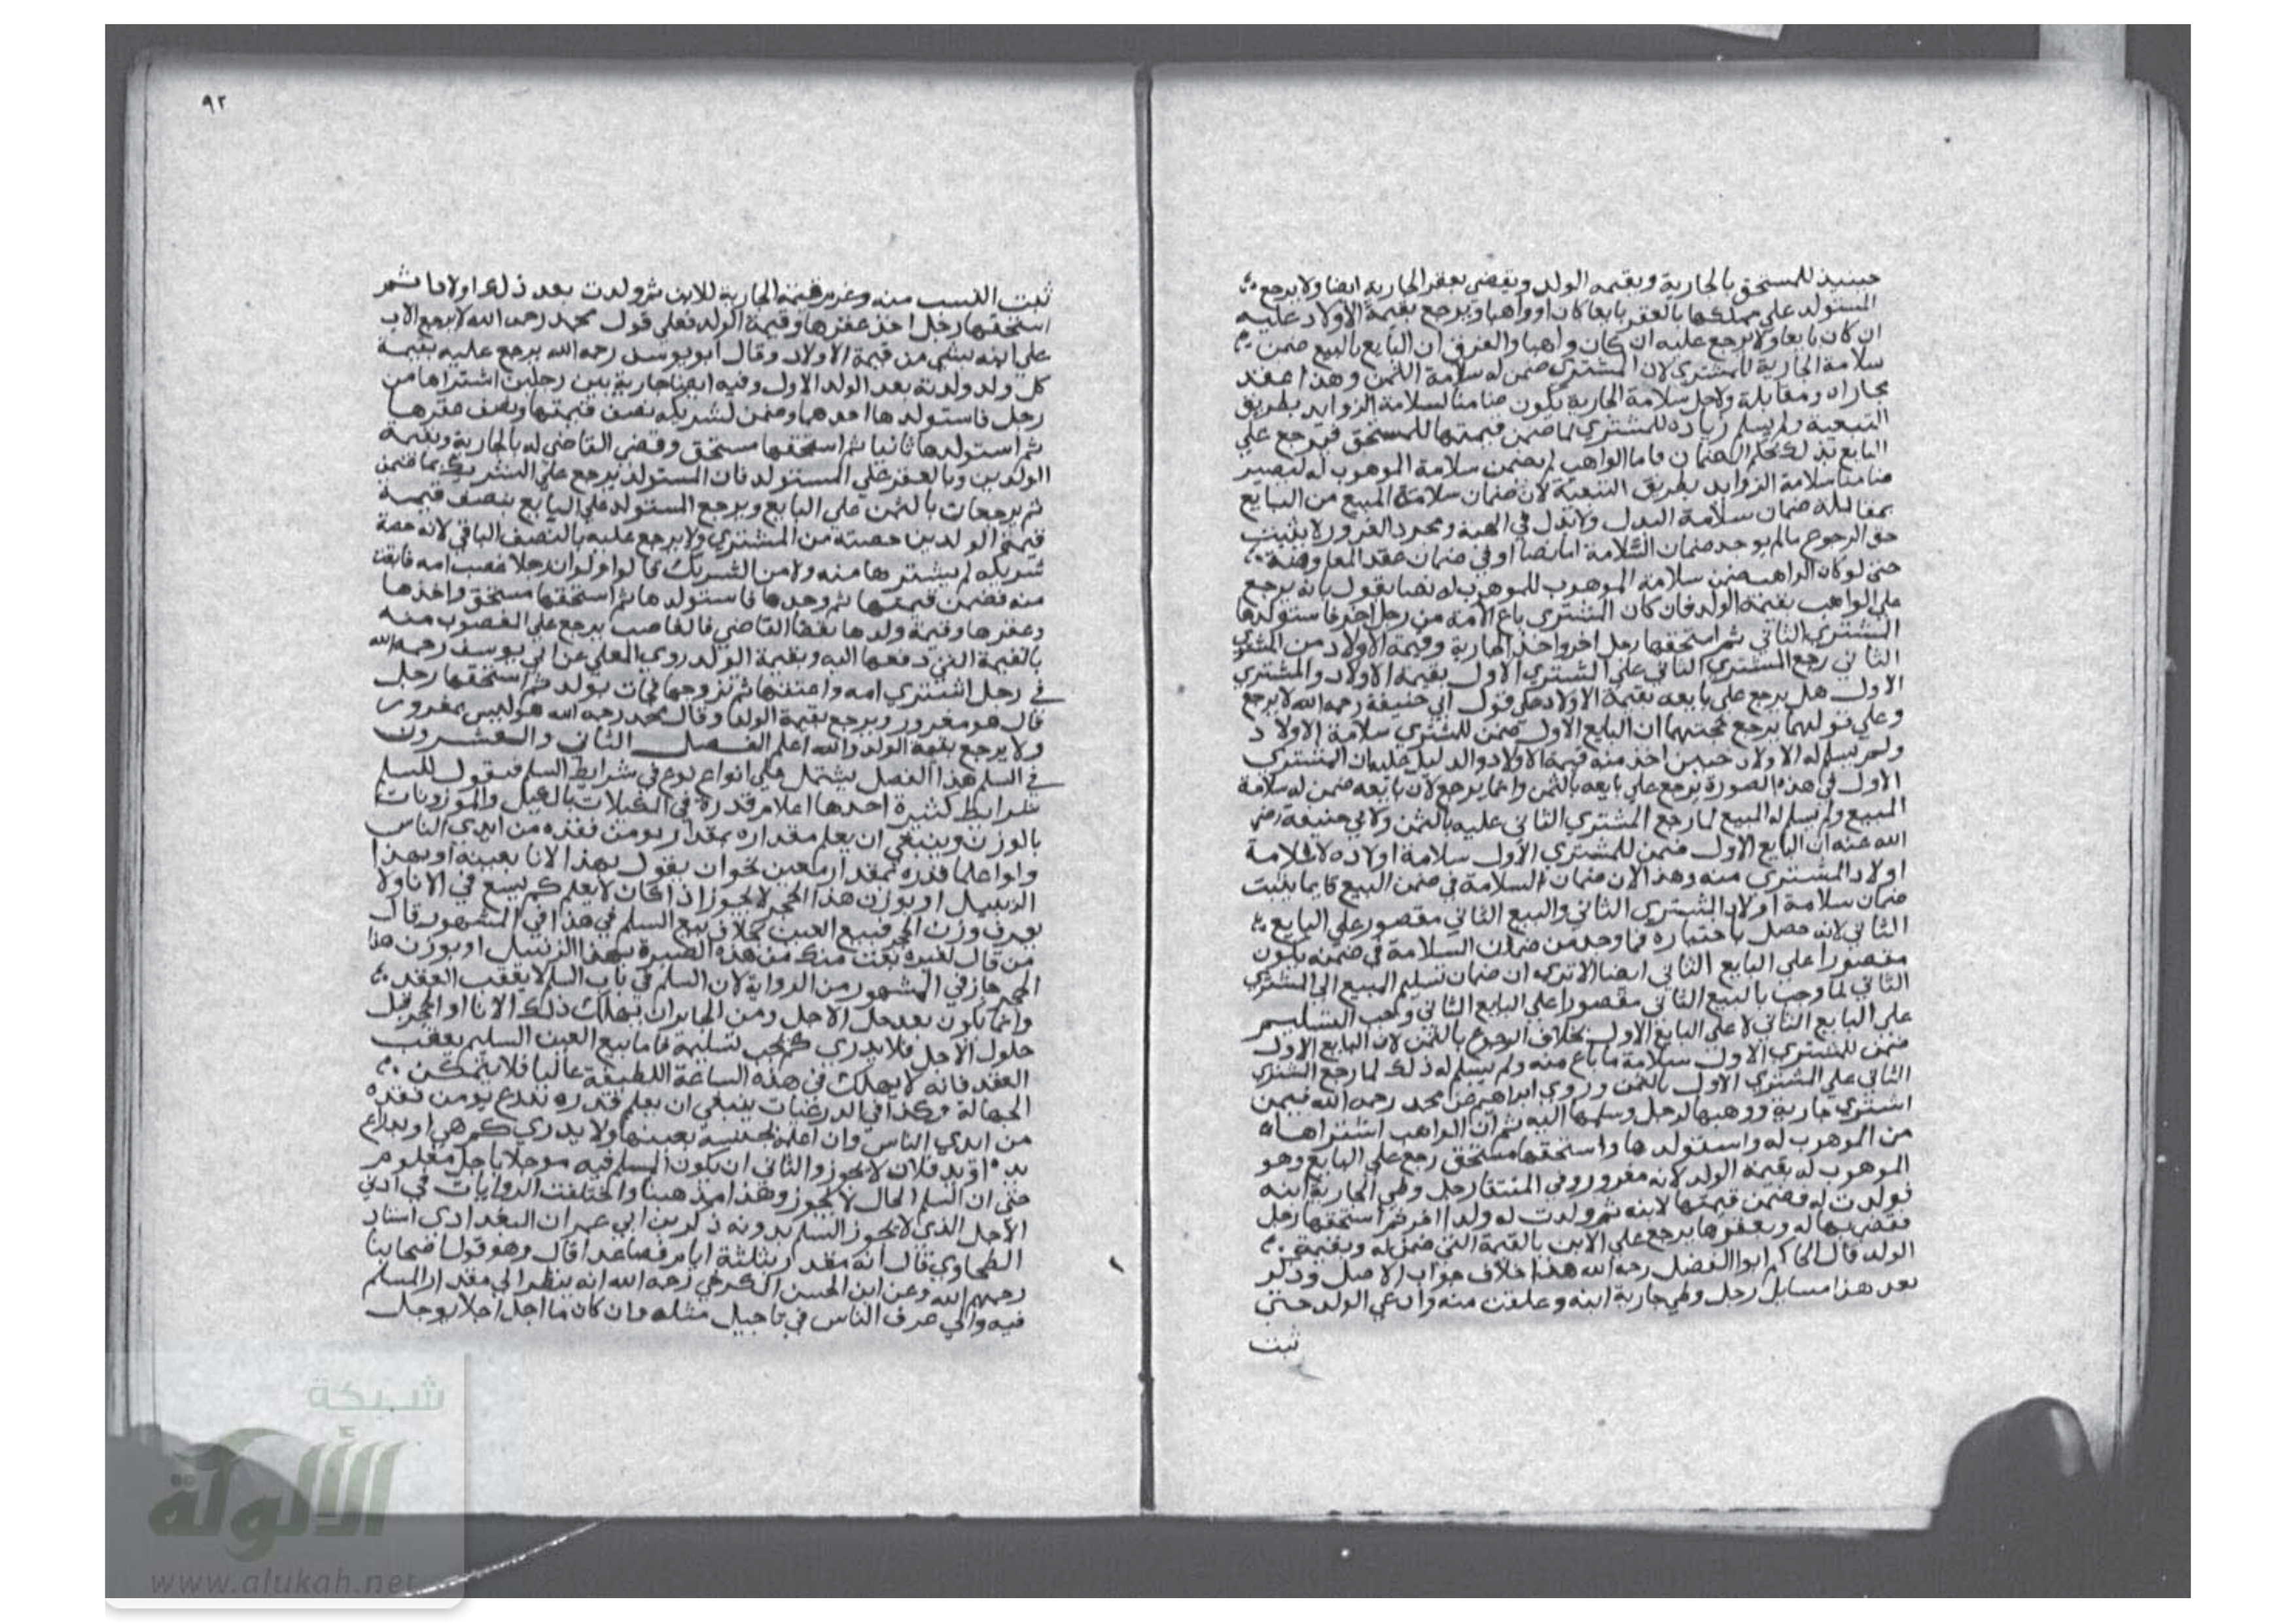 حينيذ للمستحق بالجارية وبقيمه الولد ويقضي بعقر الجارية ايضا ولا يرجع
المستولد على مملكها بالعقر بايعا كان او واهبا ويرجع بقيمة الاولاد عليه
ان كان بايعا ولا يرجع عليه ان كان واهبا والفرق ان البايع بالبيع ضمن
سلامة الجارية للمشتري لان المشتري ضمن له سلامة الثمن وهذا عقد
مجازاه ومقابلة ولاجل سلامة الجارية يكون ضامنا لسلامة الزوايد بطريق
التبعية ولم يسلم زياده للمشتري لما ضمن قيمتها للمستحق فيرجع علي
البايع بذلك بحكم الضمان فاما الواهب لم يضمن سلامة الموهوب له ليصير
ضامنا سلامة الزوايد بطريق التبعية لان ضمان سلامة المبيع من البايع
بمقابلة ضمان سلامة البدل ولا بدل في الهبة ومجرد الغرور لا يثبت
حق الرجوع ما لم يوجد ضمان السلامة اما نصا او في ضمان عقد المعاوضة
حتى لو كان الواهب ضمن سلامة الموهوب للموهوب له نصا نقول بانه يرجع
على الواهب بقيمة الولد فان كان المشتري باع الامة من رجل اخر فاستولدها
المشتري الثاني ثم استحقها رجل اخر واخذ الجارية وقيمة الاولاد من المشتري
الثاني رجع المشتري الثاني علي المشتري الاول بقيمة الاولاد والمشتري
الاول هل يرجع على بايعه بقيمة الاولاد على قول ابي حنيفة رحمه الله لا يرجع
وعلي قولهما يرجع فحجتهما ان البايع الاول ضمن للمشتري سلامة الاولاد
ولم يسلم له الاولاد حين اخذ منه قيمة الاولاد والدليل عليه ان المشتري
الاول في هذه الصورة يرجع علي بايعه بالثمن وانما يرجع لان بايعه ضمن له سلامة
المبيع ولم يسلم له المبيع لما رجع المشتري الثاني عليه بالثمن ولابي حنيفة رضي
الله عنه ان البايع الاول ضمن للمشتري الاول سلامة اولاده لا سلامة
اولاد المشتري منه وهذا لان ضمان السلامة في ضمن البيع فانما يثبت
ضمان سلامة اولاد المشتري الثاني والبيع الثاني مقصور علي البايع
الثاني لانه حصل باختياره فما وجد من ضمان السلامة في ضمنه يكون
مقصورا علي البايع الثاني ايضا الا تري ان ضمان تسليم المبيع الى المشتري
الثاني لما وجب بالبيع الثاني مقصورا علي البايع الثاني وجب التسليم
علي البايع الثاني لا على البايع الاول بخلاف الرجوع بالثمن لان البايع الاول
ضمن للمشتري الاول سلامة ما باع منه ولم يسلم له ذلك لما رجع المشتري
الثاني علي المشتري الاول بالثمن وروي ابراهيم عن محمد رحمه الله فيمن
اشتري جارية ووهبها لرجل وسلمها اليه ثم ان الواهب اشتراها
من الموهوب له واستولدها واستحقها مستحق رجع على البايع وهو
الموهوب له بقيمة الولد لانه مغرور وفي المنتقا رجل وطي الجارية ابنه
فولدت له فضمن قيمتها لابنه ثم ولدت له ولدا اخر ثم استحقها رجل
فقضي بها له وبعقرها يرجع علي الابن بالقيمة التي ضمن له وبقيمة
الولد قال الحاكم ابو الفضل رحمه الله هذا خلاف جواب الاصل وذكر
بعد هذا مسايل رجل وطي جارية ابنه وعلقت منه وادعي الولد حتى
ثبت
٩٢
ثبت النسب منه وغرم قيمة الجارية للابن ثم ولدت بعد ذلك اولادا ثم
استحقها رجل اخذ عقرها وقيمة الولد فعلي قول محمد رحمه الله لا يرجع الاب
علي ابنه بشي من قيمة الاولاد وقال ابو يوسف رحمه الله يرجع عليه بقيمة
كل ولد ولدته بعد الولد الاول وفيه ايضا جارية بين رجلين اشتراها من
رجل فاستولدها احدهما وضمن لشريكه نصف قيمتها ونصف عقرها
ثم استولدها ثانيا ثم استحقها مستحق وقضي القاضي له بالجارية وبقيمة
الولدين وبالعقر علي المستولد فان المستولد يرجع علي الشريك بما ضمن
ثم يرجعان بالثمن علي البايع ويرجع المستولد علي البايع بنصف قيمة
قيمة الولدين حصته من المشتري ولا يرجع عليه بالنصف الباقي لانه حصة
شريكه لم يشترها منه ولا من الشريك قالوا ولو ان رجلا غصب امه فابقت
منه فضمن قيمتها ثم وجدها فاستولدها ثم استحقها مستحق واخذها
وعقرها وقيمة ولدها بقضا القاضي فالغاصب يرجع علي المغصوب منه
بالقيمة التي دفعها اليه وبقيمة الولد روي المعلي عن ابي يوسف رحمه الله
في رجل اشتري امه واعتقها ثم تزوجها فجات بولد ثم استحقها رجل
قال هو مغرور ويرجع بقيمة الولد وقال محمد رحمه الله هو ليس بمغرور
ولا يرجع بقيمة الولد والله اعلم الفصل الثاني والعشرون
في السلم هذا الفصل يشتمل علي انواع نوع في شرايط السلم فنقول للسلم
شرايط كثيرة احدها اعلام قدره في المكيلات بالكيل والموزونات
بالوزن وينبغي ان يعلم مقداره بمقدار يومن فقده من ايدي الناس
ولو اعلما قدره بمقدار معين نحو ان يقول بهذا الانا بعينه او بهذا
الزبيل او بوزن هذا الحجر لا يجوز اذا كان لا يعلم كم يسع في الانا ولا
يعرف وزن الحجر فبيع العين بخلاف بيع السلم في هذا في المشهور قال
من قال لغيره بعت منك من هذه الصبرة بهذا الزنبيل او بوزن هذا
الحجر جاز في المشهور من الرواية لان السلم في باب السلم لا يعقب العقد
وانما يكون بعد حل الاجل ومن الجايز ان يهلك ذلك الانا او الحجر قبل
حلول الاجل فلا يدري كم يجب تسليمه فاما بيع العين السليم يعقب
العقد فانه لا يهلك في هذه الساعة اللطيفة غالبا فلا يتمكن
الجهالة وكذا في الذرعيات ينبغي ان يعلم قدره بذرع يومن فقده
من ايدي الناس وان اعلمه بخشبة بعينها ولا يدري كم هي او بذراع
يده او يد فلان لا يجوز والثاني ان يكون المسلم فيه موجلا باجل معلوم
حتى ان السلم الحال لا يجوز وهذا مذهبنا واختلفت الروايات في ادني
الاجل الذي لا يجوز السلم بدونه ذكر بن ابي عمران البغدادي استاد
الطحاوي قال انه مقدر بثلثة ايام فصاعدا قال وهو قول اصحابنا
رحمهم الله وعن ابن الحسن الكرخي رحمه الله انه ينظر الى مقدار المسلم
فيه والي عرف الناس في تاجيل مثله فان كان ما اجل اجلا يوجل
شبكة
الألوكة
www.alukah.net